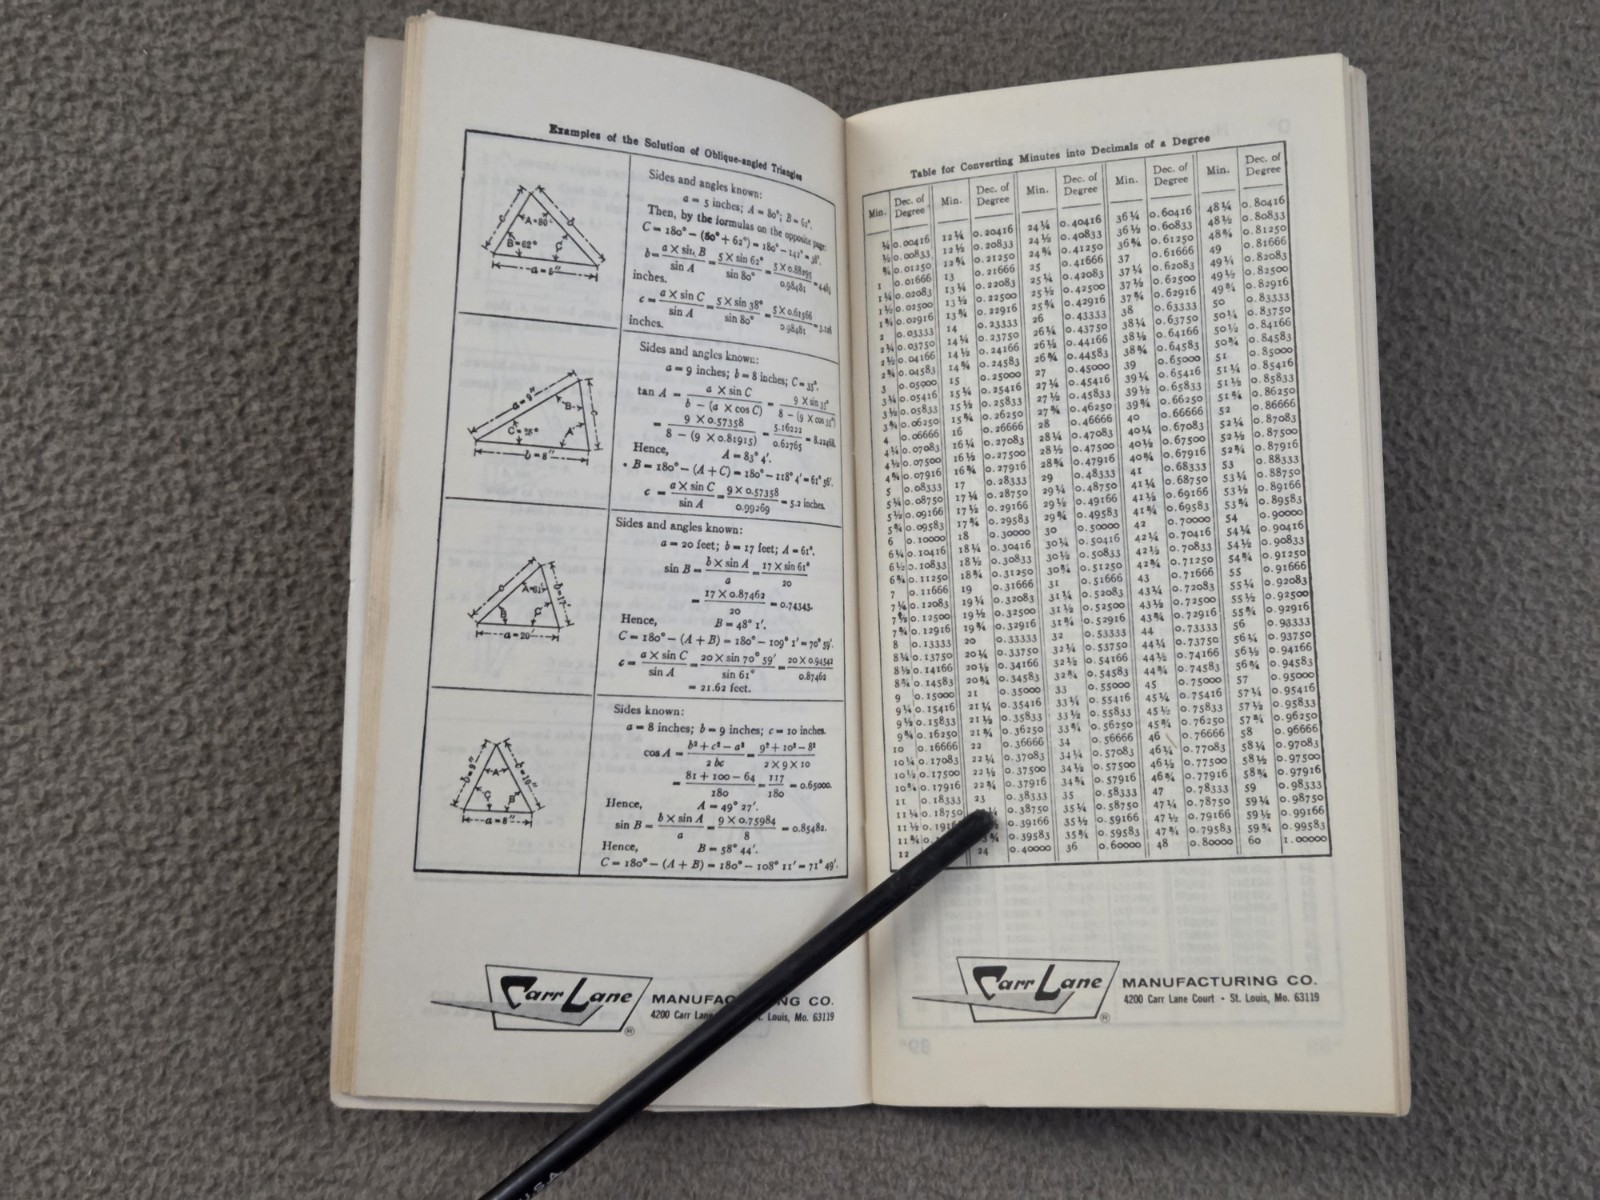 Examples of the Solution of Oblique-angled Triangles
c
b
A=80°
B=62°
C
a=5″
Sides and angles known:
a = 5 inches; A = 80°; B = 62°.
Then, by the formulas on the opposite page:
C = 180° − (80° + 62°) = 180° − 142° = 38°.
b = a × sin B / sin A = 5 × sin 62° / sin 80° = 5 × 0.88295 / 0.98481 = 4.483
inches.
c = a × sin C / sin A = 5 × sin 38° / sin 80° = 5 × 0.61566 / 0.98481 = 3.126
inches.
a=9″
B
c
C=35°
A
b=8″
Sides and angles known:
a = 9 inches; b = 8 inches; C = 35°.
tan A = a × sin C / b − (a × cos C) = 9 × sin 35° / 8 − (9 × cos 35°)
= 9 × 0.57358 / 8 − (9 × 0.81915) = 5.16222 / 0.62765 = 8.22468.
Hence, A = 83° 4′.
B = 180° − (A + C) = 180° − 118° 4′ = 61° 56′.
c = a × sin C / sin A = 9 × 0.57358 / 0.99269 = 5.2 inches.
c
A=61°
b=17′
B
C
a=20′
Sides and angles known:
a = 20 feet; b = 17 feet; A = 61°.
sin B = b × sin A / a = 17 × sin 61° / 20
= 17 × 0.87462 / 20 = 0.74343.
Hence, B = 48° 1′.
C = 180° − (A + B) = 180° − 109° 1′ = 70° 59′.
c = a × sin C / sin A = 20 × sin 70° 59′ / sin 61° = 20 × 0.94542 / 0.87462
= 21.62 feet.
b=9″
A
c=10″
C
B
a=8″
Sides known:
a = 8 inches; b = 9 inches; c = 10 inches.
cos A = b² + c² − a² / 2 bc = 9² + 10² − 8² / 2 × 9 × 10
= 81 + 100 − 64 / 180 = 117 / 180 = 0.65000.
Hence, A = 49° 27′.
sin B = b × sin A / a = 9 × 0.75984 / 8 = 0.85482.
Hence, B = 58° 44′.
C = 180° − (A + B) = 180° − 108° 11′ = 71° 49′.
Carr Lane ® MANUFACTURING CO.
4200 Carr Lane St. Louis, Mo. 63119
U.S.A.
Table for Converting Minutes into Decimals of a Degree
Min. Dec. of Degree Min. Dec. of Degree Min. Dec. of Degree Min. Dec. of Degree Min. Dec. of Degree
¼ 0.00416 12¼ 0.20416 24¼ 0.40416 36¼ 0.60416 48¼ 0.80416
½ 0.00833 12½ 0.20833 24½ 0.40833 36½ 0.60833 48½ 0.80833
¾ 0.01250 12¾ 0.21250 24¾ 0.41250 36¾ 0.61250 48¾ 0.81250
1 0.01666 13 0.21666 25 0.41666 37 0.61666 49 0.81666
1¼ 0.02083 13¼ 0.22083 25¼ 0.42083 37¼ 0.62083 49¼ 0.82083
1½ 0.02500 13½ 0.22500 25½ 0.42500 37½ 0.62500 49½ 0.82500
1¾ 0.02916 13¾ 0.22916 25¾ 0.42916 37¾ 0.62916 49¾ 0.82916
2 0.03333 14 0.23333 26 0.43333 38 0.63333 50 0.83333
2¼ 0.03750 14¼ 0.23750 26¼ 0.43750 38¼ 0.63750 50¼ 0.83750
2½ 0.04166 14½ 0.24166 26½ 0.44166 38½ 0.64166 50½ 0.84166
2¾ 0.04583 14¾ 0.24583 26¾ 0.44583 38¾ 0.64583 50¾ 0.84583
3 0.05000 15 0.25000 27 0.45000 39 0.65000 51 0.85000
3¼ 0.05416 15¼ 0.25416 27¼ 0.45416 39¼ 0.65416 51¼ 0.85416
3½ 0.05833 15½ 0.25833 27½ 0.45833 39½ 0.65833 51½ 0.85833
3¾ 0.06250 15¾ 0.26250 27¾ 0.46250 39¾ 0.66250 51¾ 0.86250
4 0.06666 16 0.26666 28 0.46666 40 0.66666 52 0.86666
4¼ 0.07083 16¼ 0.27083 28¼ 0.47083 40¼ 0.67083 52¼ 0.87083
4½ 0.07500 16½ 0.27500 28½ 0.47500 40½ 0.67500 52½ 0.87500
4¾ 0.07916 16¾ 0.27916 28¾ 0.47916 40¾ 0.67916 52¾ 0.87916
5 0.08333 17 0.28333 29 0.48333 41 0.68333 53 0.88333
5¼ 0.08750 17¼ 0.28750 29¼ 0.48750 41¼ 0.68750 53¼ 0.88750
5½ 0.09166 17½ 0.29166 29½ 0.49166 41½ 0.69166 53½ 0.89166
5¾ 0.09583 17¾ 0.29583 29¾ 0.49583 41¾ 0.69583 53¾ 0.89583
6 0.10000 18 0.30000 30 0.50000 42 0.70000 54 0.90000
6¼ 0.10416 18¼ 0.30416 30¼ 0.50416 42¼ 0.70416 54¼ 0.90416
6½ 0.10833 18½ 0.30833 30½ 0.50833 42½ 0.70833 54½ 0.90833
6¾ 0.11250 18¾ 0.31250 30¾ 0.51250 42¾ 0.71250 54¾ 0.91250
7 0.11666 19 0.31666 31 0.51666 43 0.71666 55 0.91666
7¼ 0.12083 19¼ 0.32083 31¼ 0.52083 43¼ 0.72083 55¼ 0.92083
7½ 0.12500 19½ 0.32500 31½ 0.52500 43½ 0.72500 55½ 0.92500
7¾ 0.12916 19¾ 0.32916 31¾ 0.52916 43¾ 0.72916 55¾ 0.92916
8 0.13333 20 0.33333 32 0.53333 44 0.73333 56 0.93333
8¼ 0.13750 20¼ 0.33750 32¼ 0.53750 44¼ 0.73750 56¼ 0.93750
8½ 0.14166 20½ 0.34166 32½ 0.54166 44½ 0.74166 56½ 0.94166
8¾ 0.14583 20¾ 0.34583 32¾ 0.54583 44¾ 0.74583 56¾ 0.94583
9 0.15000 21 0.35000 33 0.55000 45 0.75000 57 0.95000
9¼ 0.15416 21¼ 0.35416 33¼ 0.55416 45¼ 0.75416 57¼ 0.95416
9½ 0.15833 21½ 0.35833 33½ 0.55833 45½ 0.75833 57½ 0.95833
9¾ 0.16250 21¾ 0.36250 33¾ 0.56250 45¾ 0.76250 57¾ 0.96250
10 0.16666 22 0.36666 34 0.56666 46 0.76666 58 0.96666
10¼ 0.17083 22¼ 0.37083 34¼ 0.57083 46¼ 0.77083 58¼ 0.97083
10½ 0.17500 22½ 0.37500 34½ 0.57500 46½ 0.77500 58½ 0.97500
10¾ 0.17916 22¾ 0.37916 34¾ 0.57916 46¾ 0.77916 58¾ 0.97916
11 0.18333 23 0.38333 35 0.58333 47 0.78333 59 0.98333
11¼ 0.18750 0.38750 35¼ 0.58750 47¼ 0.78750 59¼ 0.98750
11½ 0.39166 35½ 0.59166 47½ 0.79166 59½ 0.99166
11¾ 0.39583 35¾ 0.59583 47¾ 0.79583 59¾ 0.99583
12 24 0.40000 36 0.60000 48 0.80000 60 1.00000
Carr Lane ® MANUFACTURING CO.
4200 Carr Lane Court • St. Louis, Mo. 63119